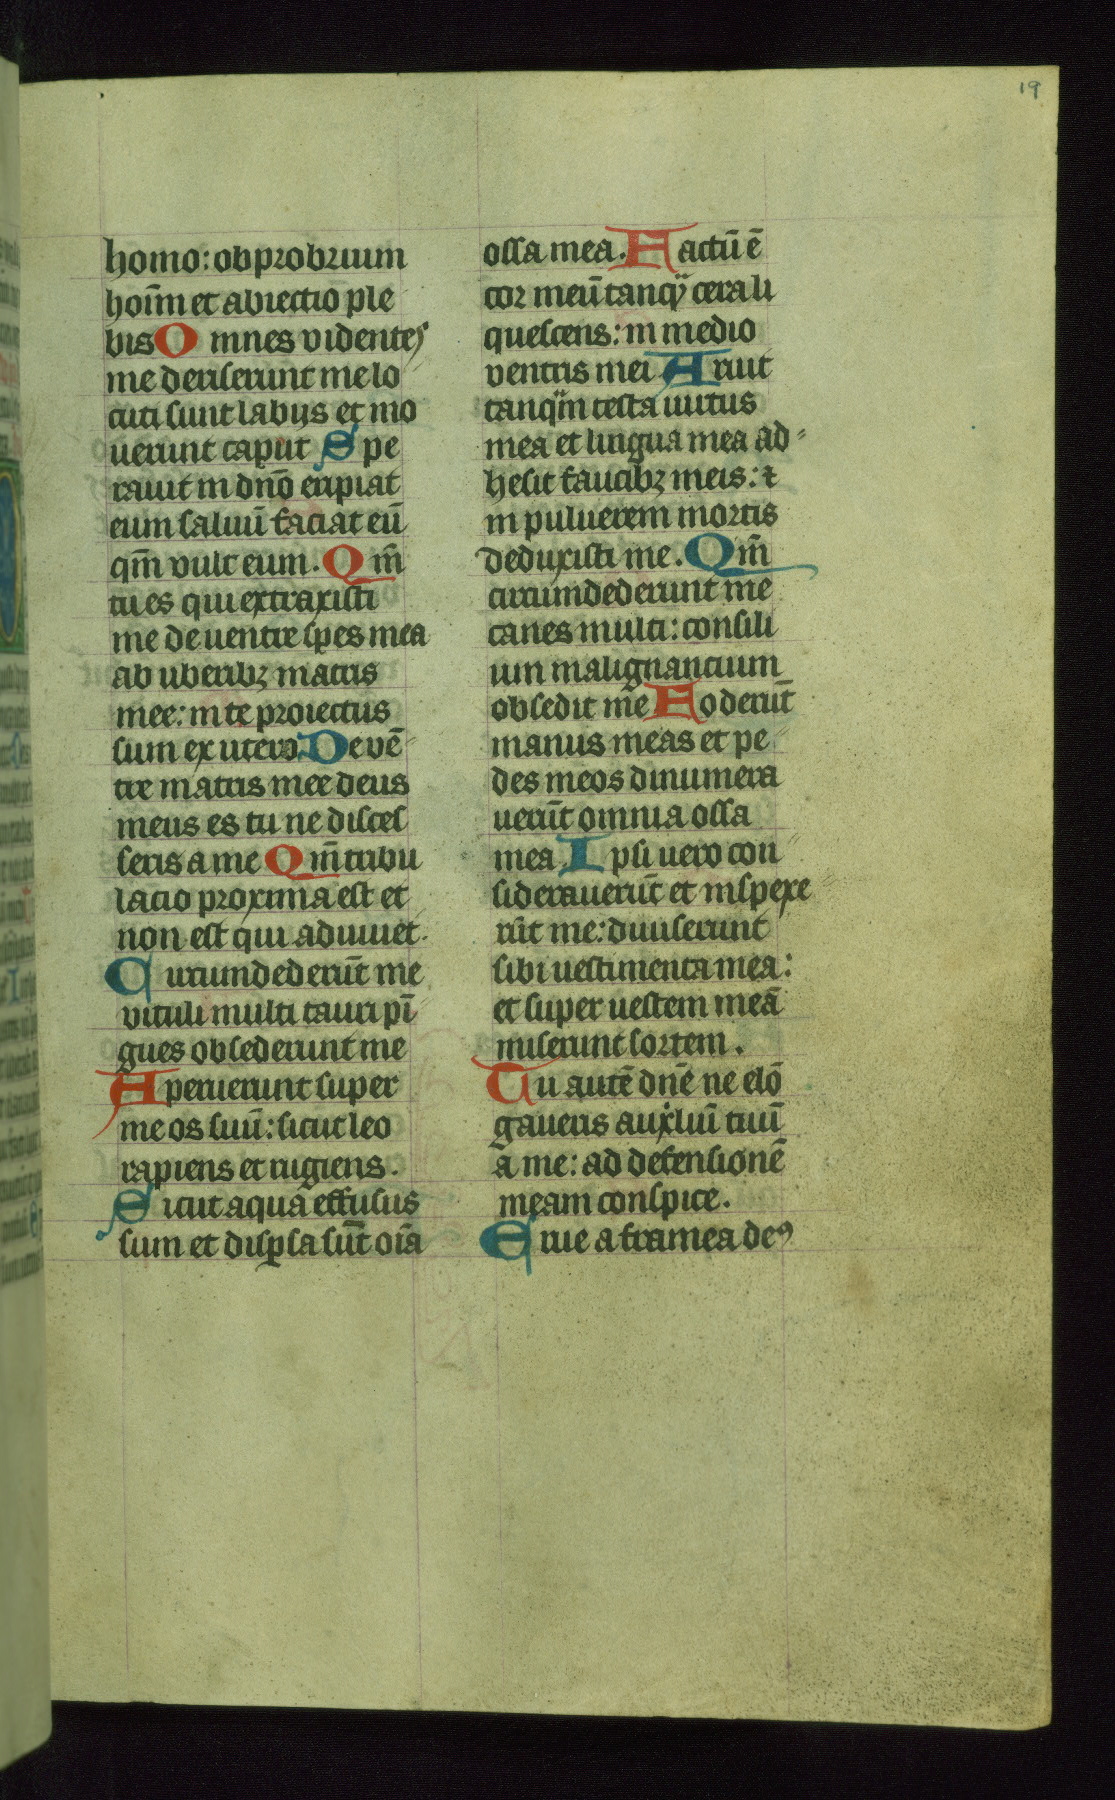 19
homo: obprobrium
hoīm et abiectio ple
bis Omnes videntes
me deriserunt me lo
cuti sunt labijs et mo
uerunt caput Spe
rauit in dnō eripiat
eum saluū faciat eū
qm̄ vult eum. Qm̄
tu es qui extraxisti
me de uentre spes mea
ab uberibꝫ matris
mee: in te proiectus
sum ex utero. De vē
tre matris mee deus
meus es tu ne disces
seris a me Qm̄ tribu
lacio proxima est et
non est qui adiuuet.
Circumdederūt me
vituli multi tauri pī
gues obsederunt me
Aperuerunt super
me os suū: sicut leo
rapiens et rugiens.
Sicut aqua effusus
sum et disꝑsa sūt oīa
ossa mea. Factū ē
cor meū tanqͣ cera li
quescens: in medio
ventris mei Aruit
tanqͣm testa uirtus
mea et lingua mea ad
hesit faucibꝫ meis: ⁊
in puluerem mortis
deduxisti me. Qm̄
circumdederunt me
canes multi: consili
um malignancium
obsedit me Foderūt
manus meas et pe
des meos dinumera
uerūt omnia ossa
mea Ipsi uero con
siderauerūt et inspexe
rūt me: diuiserunt
sibi uestimenta mea:
et super uestem meā
miserunt sortem.
Tu autē dnē ne elō
gaueris auxliū tuū
a me: ad defensionē
meam conspice.
Erue a framea deꝰ